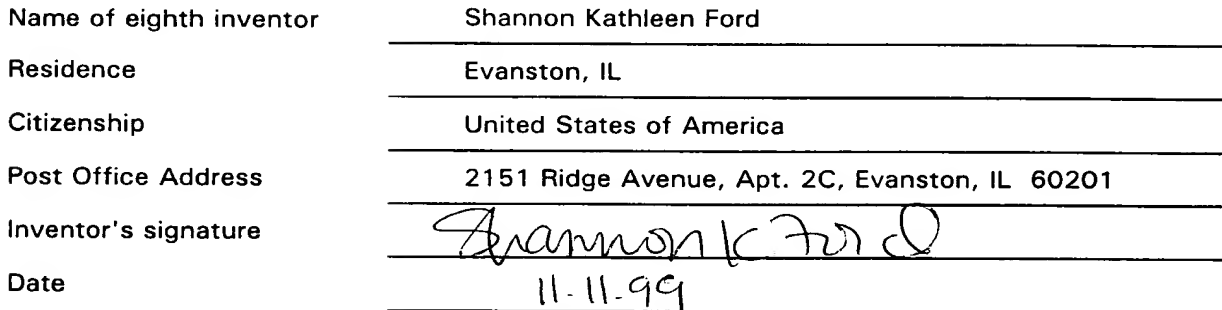 Name of eighth inventor Shannon Kathleen Ford
Residence Evanston, IL
Citizenship United States of America
Post Office Address 2151 Ridge Avenue, Apt. 2C, Evanston, IL 60201
Inventor's signature Shannon K Ford
Date 11-11-99